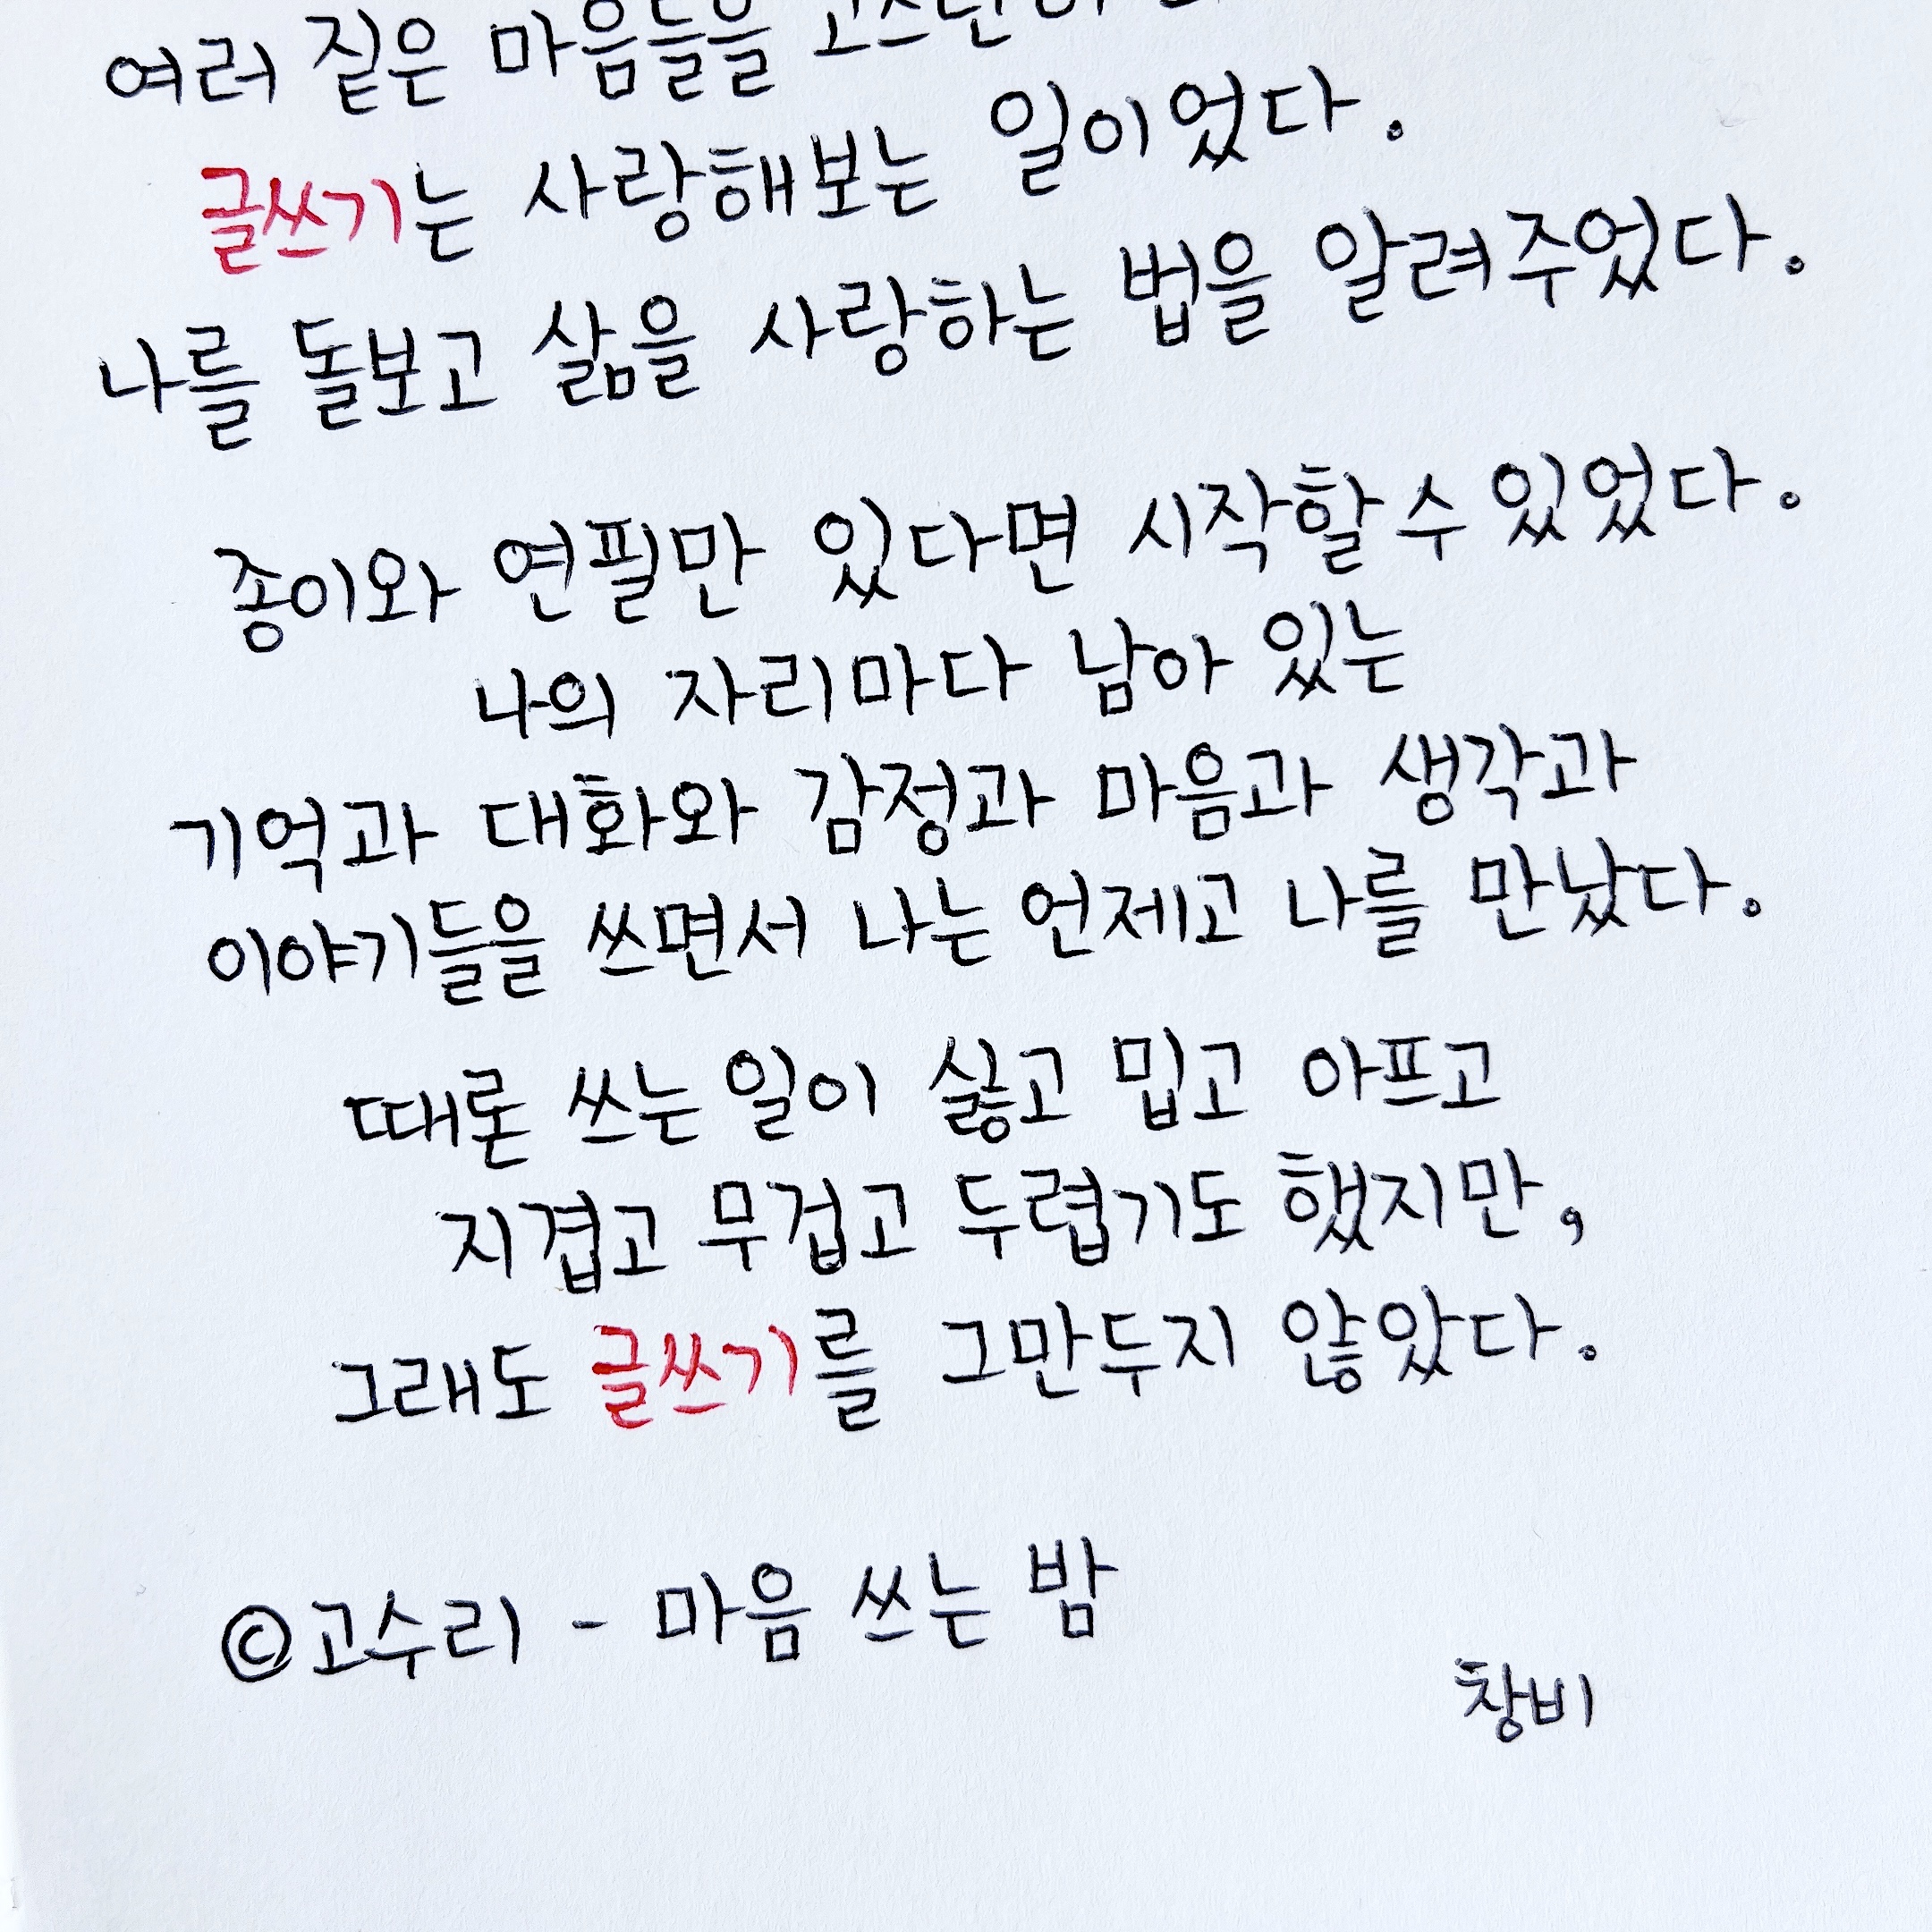 여러 짙은 마음들을
일이었다.
글쓰기는 사랑해보는
나를 돌보고 삶을 사랑하는 법을 알려주었다.
종이와 연필만 있다면 시작할 수 있었다.
나의 자리마다 남아 있는
기억과 대화와 감정과 마음과 생각과
이야기들을 쓰면서 나는 언제고 나를 만났다.
때론 쓰는 일이 싫고 밉고 아프고
지겹고 무겁고 두렵기도 했지만,
그래도 글쓰기를 그만두지 않았다.
©고수리 - 마음 쓰는 밤
창비